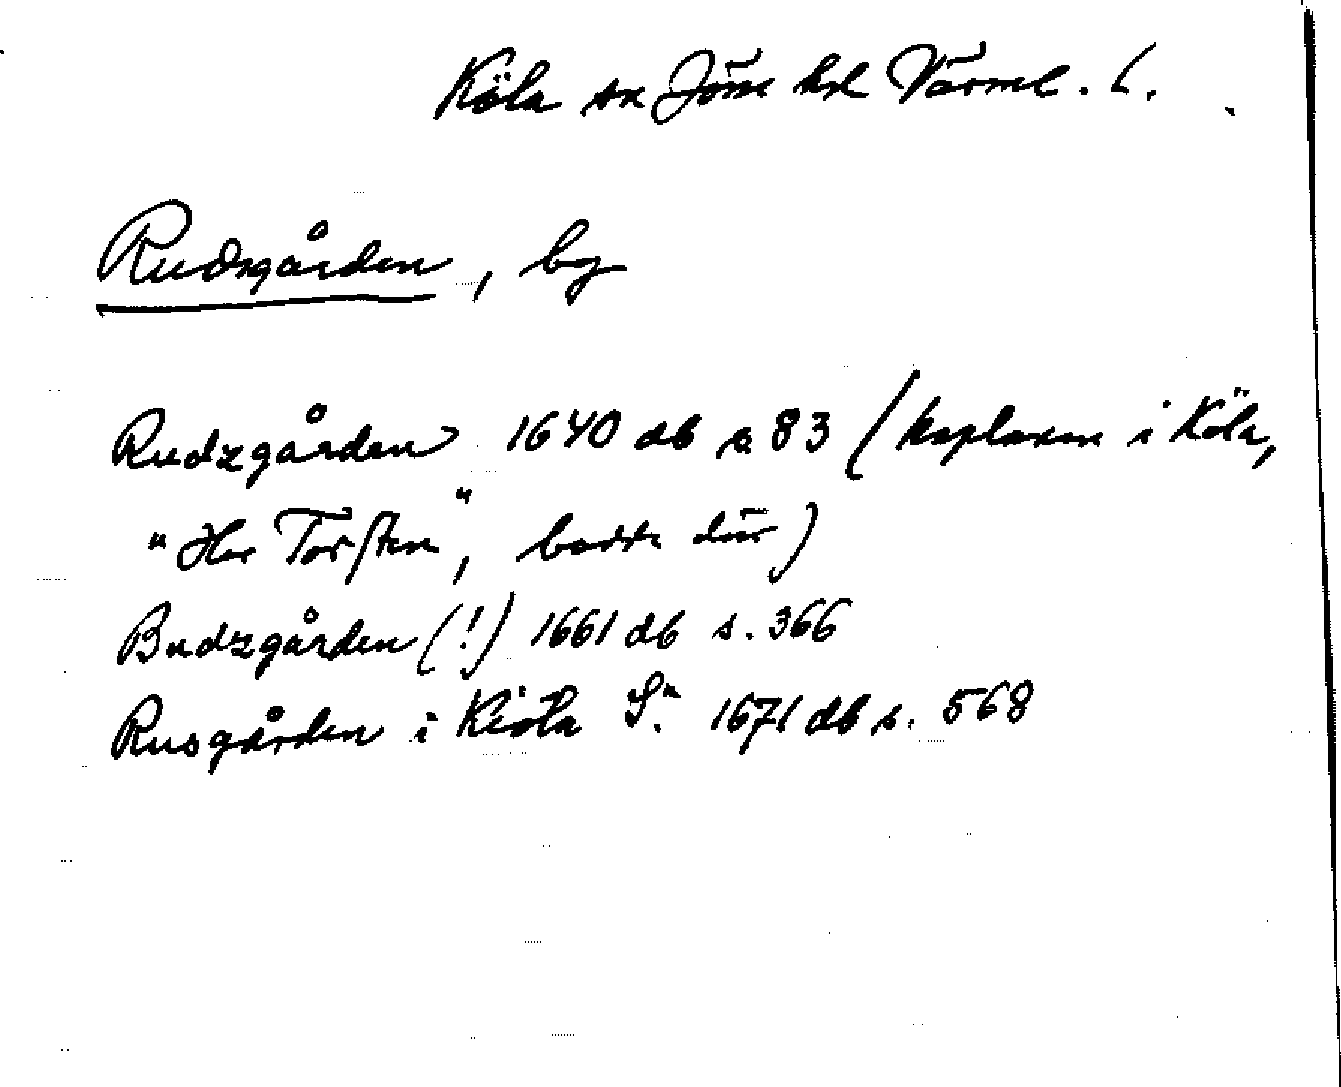 Köla sn Jösse hd Värml. l.
Rudsgården, by
Rudzgården 1640 db s 83 (kaplanen i Köla,
"Her Torsten", bodde där)
Budzgården (!) 1661 db s. 366
Rusgården i Kiöla Sn 1671 db s. 568